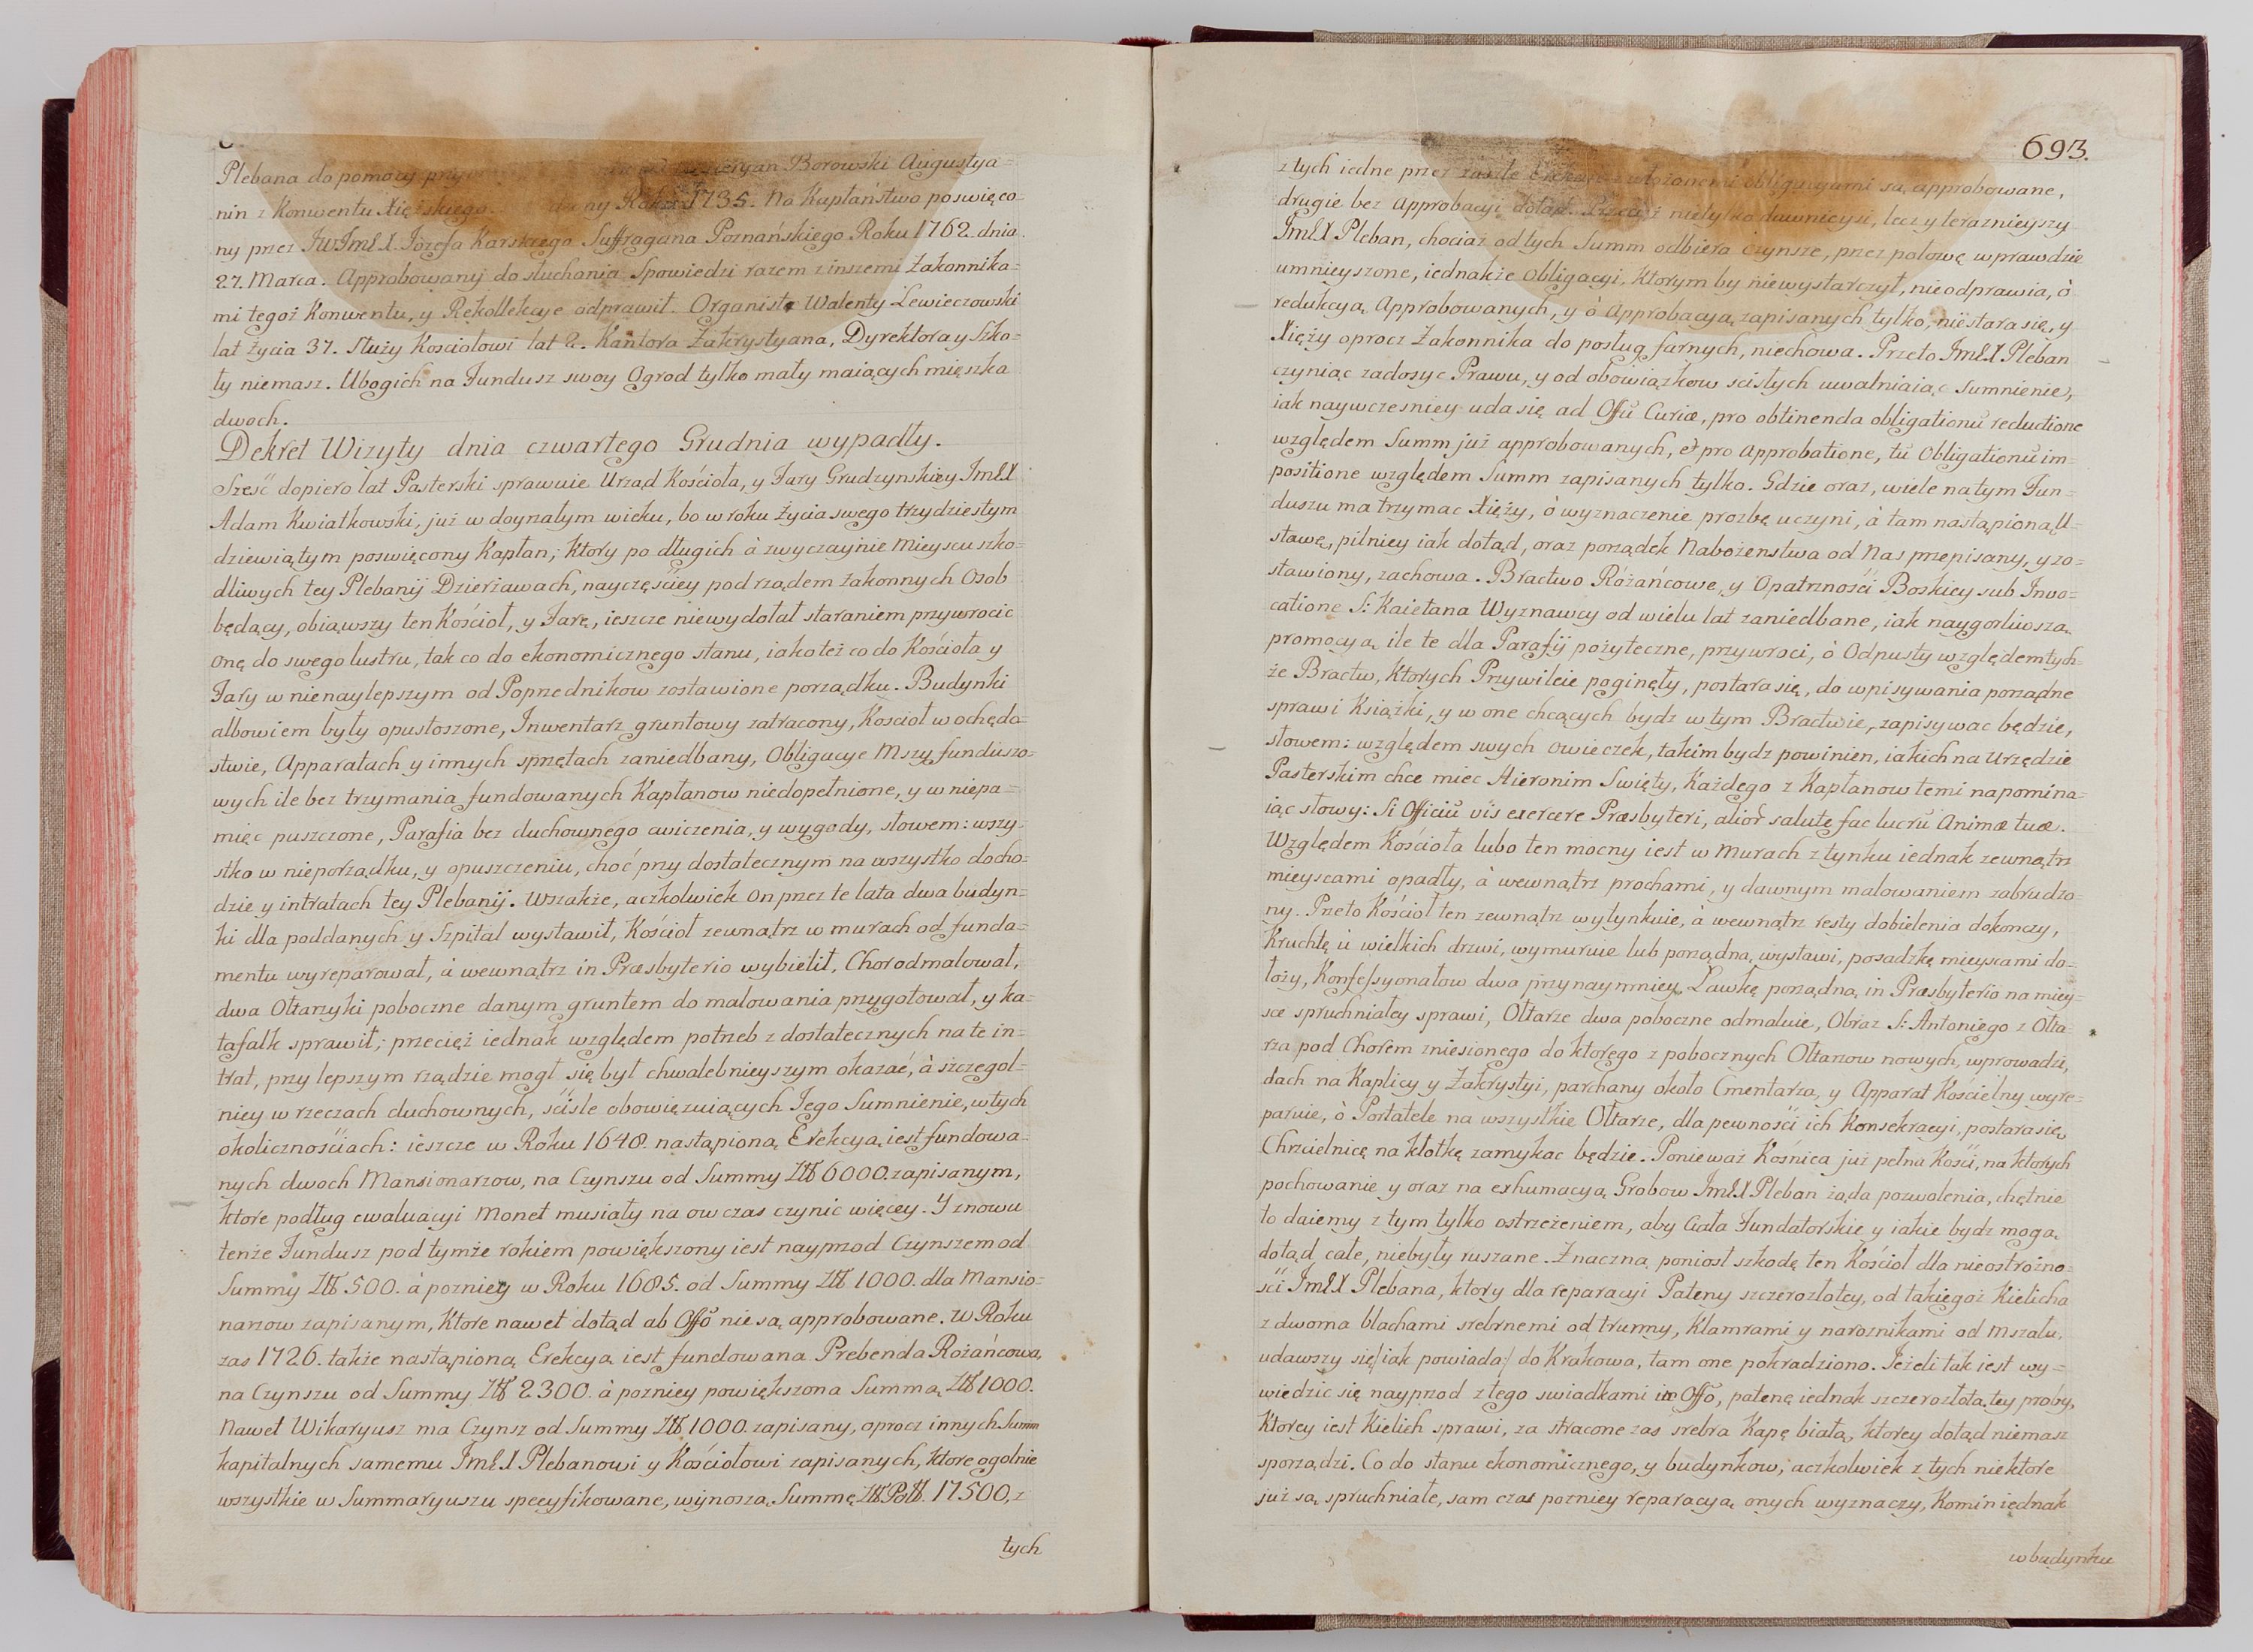 Plebana do pomocy Borowski Augustya=
nin z Konwentu Xięzskiego. Roku 1735. Na Kapłaństwo poswięco
ny przez JWJmćX. Józefa Karskiego Suffragana Poznańskiego Roku 1762 dnia.
27. Marca. Approbowany do słuchania Spowiedzi razem z inszemi Zakonnika=
mi tegoż Konwentu, y Rekollekcye odprawił. Organista Walenty Lewieczowski
lat życia 37. Służy Kosciołowi lat 2. Kantora Zakrystyana, Dyrektora y Szko=
ły niemasz. Ubogich na Fundusz swoy Ogrod tylko mały maiących mięszka
dwoch.
Dekret Wizyty dnia czwartego Grudnia wypadły.
Sześć dopiero lat Pasterski sprawuie Urząd Kościoła, y Fary Grudzynskiey JmćX
Adam Kwiatkowski, już w doyzałym wieku, bo w roku życia swego trzydziestym
dziewiątym poswięcony Kapłan; Ktory po długich à zwyczaynie Mieyscu szko=
dliwych tey Plebanij Dzierżawach, nayczęściey pod rządem zakonnych Osob
będący, obiąwszy ten Kościoł, y Farę, ieszcze niewydołał staraniem przywrocic
onę do swego lustru, tak co do ekonomicznego stanu, iako też co do Kościoła y
Fary w nienaylepszym od Poprzednikow zostawione porządku. Budynki
albowiem były opustoszone, Inwentarz gruntowy zatracony, Kościoł w ochędo=
stwie, Apparatach y innych sprzętach zaniedbany, Obligacye Mszy funduszo=
wych ile bez trzymania fundowanych Kapłanow niedopełnione, y w niepa=
mięc puszczone, Parafia bez duchownego cwiczenia, y wygody, słowem: wszy=
stko w nieporządku, y opuszczeniu, choć przy dostatecznym na wszystko docho=
dzie y intratach tey Plebanij. Wszakże, aczkolwiek on przez te lata dwa budyn=
ki dla poddanych y Szpital wystawił, Kościoł zewnątrz w murach od funda=
mentu wyreparował, à wewnątrz in Præsbyterio wybielił, Chor odmalował,
dwa Ołtarzyki poboczne danym gruntem do malowania przygotował, y ka=
tafalk sprawił; przecięż iednak względem potrzeb z dostatecznych na te in=
trat, przy lepszym rządzie mogł się był chwalebnieyszym okazać, à szczegol=
niey w rzeczach duchownych, sciśle obowięzuiących Jego Sumnienie, w tych
okolicznościach: ieszcze w Roku 1648 nastąpioną Erekcyą iest fundowa=
nych dwoch Mansionarzow, na Czynszu od Summy Złł 6000. zapisanym,
ktore podług ewaluacyi Monet musiały na ow czas czynic więcey. Y znowu
tenże Fundusz pod tymże rokiem powiększony iest nayprzod Czynszem od
Summy Złł 500. à pozniey w Roku 1685. od Summy Złł. 1000. dla Mansio=
narzow zapisanym, Ktore nawet dotąd ab Offō nie są approbowane. W Roku
zas 1726. także nastąpioną Erekcyą iest fundowana Prebenda Rożańcowa,
na Czynszu od Summy Złł 2300. à pozniey powiększona Summą Złł 1000.
Nawet Wikaryusz ma Czynsz od Summy Złł 1000. zapisany, oprocz innych Summ
kapitalnych samemu JmćX Plebanowi y Kościołowi zapisanych, ktore ogolnie
wszystkie w Summaryuszu specyfikowane, wynoszą Summę Złł Poll. 17500, z
tych
693.
z tych iedne przez obligacyami są approbowane,
drugie bez Approbacyi dotąd. nietylko dawnieysi, lecz y teraznieyszy
JmćX Pleban, chociaż od tych Summ odbiera czynsze, przez połowę wprawdzie
umnieyszone, iednakże Obligacyi, Ktorym by niewystarczył, nieodprawia, ò
redukcyą Approbowanych, y ò Approbacyą zapisanych tylko, niestara się, y
Xięży oprocz Zakonnika do posług farnych, niechowa. Przeto JmćX Pleban
czyniąc zadosyc Prawu, y od obowiązkow scisłych uwalniaiąc Sumnienie,
iak naywczesniey uda się ad Offū Curiæ, pro obtinenda obligationū reductione
względem Summ już approbowanych, et pro Approbatione, tū Obligationū im=
positione względem Summ zapisanych tylko. Gdzie oraz, wiele na tym Fun=
duszu ma trzymac Xięży, ò wyznaczenie prozbę uczyni, à tam nastąpioną U=
stawę, pilniey iak dotąd, oraz porządek Nabożenstwa od Nas przepisany, y zo=
stawiony, zachowa. Bractwo Różańcowe, y Opatrzności Boskiey sub Invo=
catione S: Kaietana Wyznawcy od wielu lat zaniedbane, iak naygorliwszą
promocyą, ile te dla Parafij pożyteczne, przywroci, ò Odpusty względem tych=
że Bractw, Ktorych Przywileie poginęły, postara się, do wpisywania porządne
sprawi Książki, y w one chcących bydz w tym Bractwie, zapisywac będzie,
słowem: względem swych owieczek, takim bydz powinien, iakich na Urzędzie
Pasterskim chce miec Hieronim Swięty, Każdego z Kapłanow temi napomina=
iąc słowy: Si Officiū vis exercere Præsbyteri, aliōr salutē fac lucrū Animæ tuæ.
Względem Kościoła lubo ten mocny iest w Murach z tynku iednak zewnątrz
mieyscami opadły, à wewnątrz prochami, y dawnym malowaniem zabrudzo=
ny. Przeto Kościoł ten zewnątrz wytynkuie, à wewnątrz resty dobielenia dokonczy,
Kruchtę ù wielkich drzwi, wymuruie lub porządną wystawi, posadzkę mieyscami do=
łoży, Konfessyonałow dwa przynaymniey, Ławkę porządną in Præsbyterio na miey=
sce spruchniałey sprawi, Ołtarze dwa poboczne odmaluie, Obraz S: Antoniego z Ołta=
rza pod Chorem zniesionego do ktorego z pobocznych Ołtarzow nowych, wprowadzi,
dach na Kaplicy y Zakrystyi, parchany około Cmentarza, y Apparat Kościelny wyre=
paruie, ò Portatele na wszystkie Ołtarze, dla pewności ich Konsekracyi, postara się,
Chrzcielnicę na kłotkę zamykac będzie. Ponieważ Kośnica już pełna Kości, na ktorych
pochowanie y oraz na exhumacyą Grobow JmćX Pleban żąda pozwolenia, chętnie
to daiemy z tym tylko ostrzeżeniem, aby Ciała Fundatorskie y iakie bydz mogą
dotąd całe, niebyły ruszane. Znaczną poniosł szkodę ten Kościoł dla nieostrożno=
ści JmćX Plebana, ktory dla reparacyi Pateny szczerozłotey, od takiegoż Kielicha
z dwoma blachami srebrnemi od trumny, Klamrami y narożnikami od Mszału,
udawszy się /:iak powiada:/ do Krakowa, tam one pokradziono. Jeżeli tak iest wy=
wiedzic się nayprzod z tego swiadkami in Offō, patenę iednak szczerozłotą tey proby,
Ktorey iest Kielich sprawi, za stracone zas srebra Kapę białą, ktorey dotąd niemasz
sporządzi. Co do stanu ekonomicznego, y budynkow, aczkolwiek z tych niektore
już są spruchniałe, sam czas pozniey reparacyą onych wyznaczy, Komin iednak
w budynku